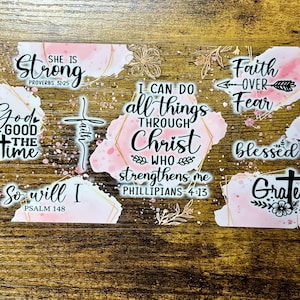 SHE IS
Strong
PROVERBS 31:25
God
GOOD
THE
time
faith
So will I
PSALM 148
I CAN DO
all things
THROUGH
Christ
WHO
strengthens me
PHILLIPIANS 4:13
Faith
OVER
Fear
blessed
Grate